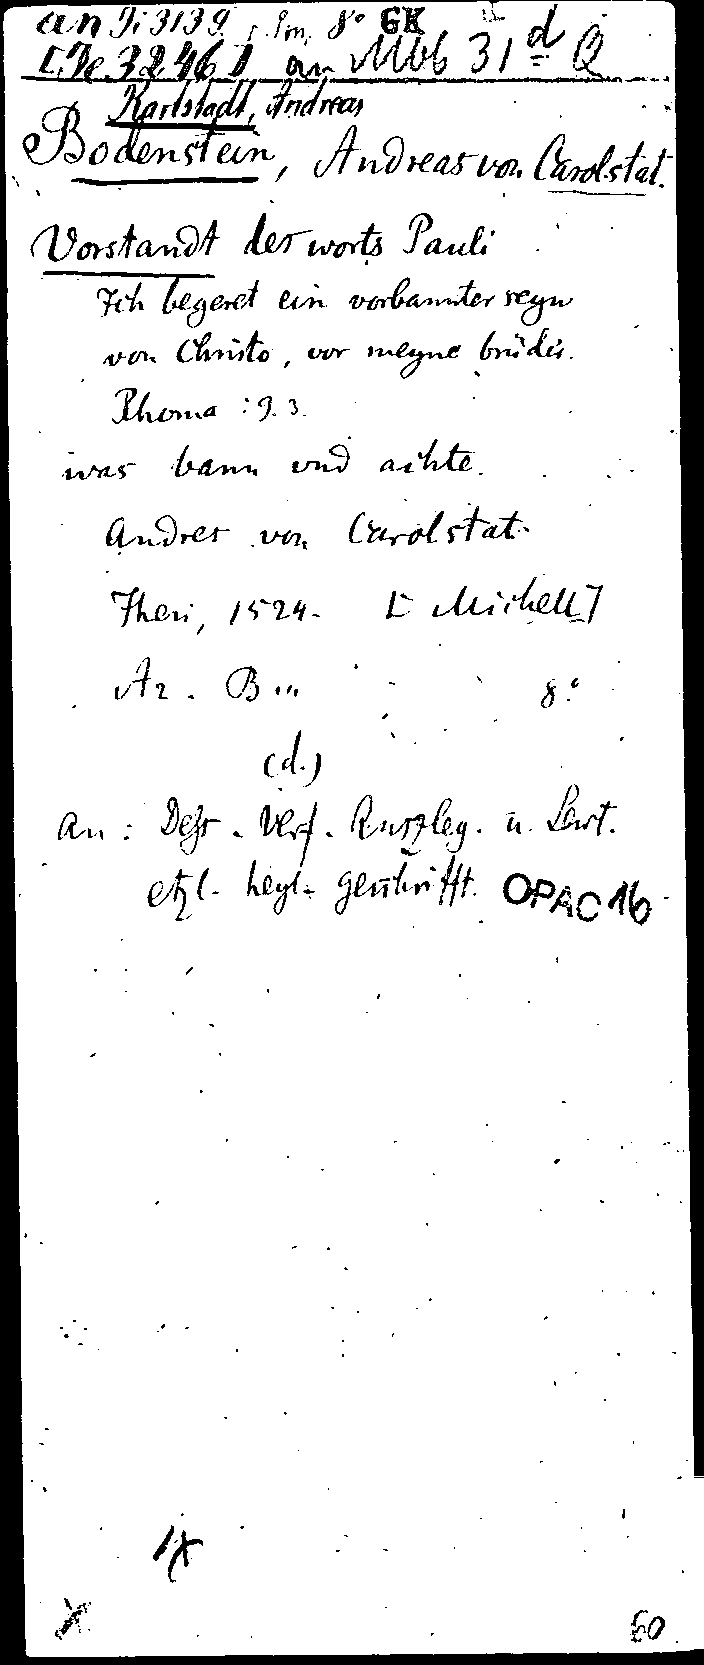 an Di 3139, 8° GK
[De 3246] an Mbb 31 d Q
Karlstadt, Andreas
Bodenstein, Andreas von Carolstat.
Vorstandt des worts Pauli
Ich begeret ein vorbannter seyn
von Christo, vor meyne brüder.
Rhoma: 9.3.
was bann vnd achte.
Andres von Carolstat.
Jhen, 1524. [Michell]
A2. B... 8°
(d.)
an: Verf. Auszleg. u. Lewt.
etzl. heyl. geschrifft. OPAC 16
X
60